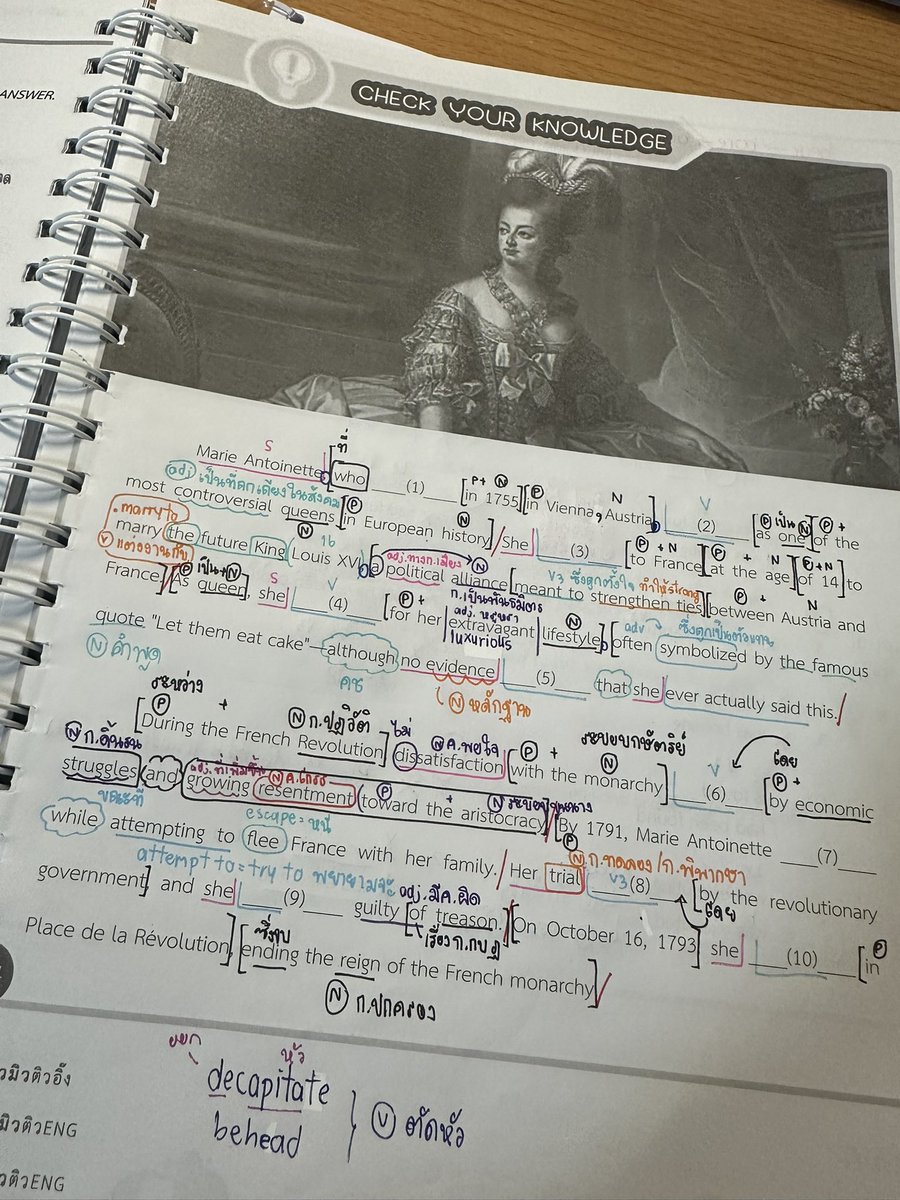 ANSWER.
CHECK YOUR KNOWLEDGE
S ที่ P+ N P N V P เป็น N P +
Marie Antoinette, who ___(1)___ in 1755 in Vienna, Austria, ___(2)___ as one of the
adj เป็นที่ถกเถียงในสังคม P N N
most controversial queens in European history. She ___(3)___ to France at the age of 14 to
marry to 16 P + N P + N P+N
marry the future King Louis XVI, a political alliance meant to strengthen ties between Austria and
V แต่งงานกับ P เป็น+N S V adj.ทางก.เมือง N V3 ซึ่งถูกตั้งใจ ทำให้strong P + N
France. As queen, she ___(4)___ for her extravagant lifestyle, often symbolized by the famous
P + ก.เป็นพันธมิตร adj. หรูหรา luxurious N adv ซึ่งถูกเป็นตัวแทน
quote "Let them eat cake"—although no evidence ___(5)___ that she ever actually said this.
N คำพูด N หลักฐาน
ระหว่าง
P + N ก.ปฏิวัติ ไม่ N ค.พอใจ P + ระบอบกษัตริย์ N V โดย P +
During the French Revolution, dissatisfaction with the monarchy ___(6)___ by economic
N ก.ดิ้นรน adj.ที่เพิ่มขึ้น N P + N
struggles and growing resentment toward the aristocracy. By 1791, Marie Antoinette ___(7)___
ขณะที่ escape = หนี P
while attempting to flee France with her family. Her trial ___(8)___ by the revolutionary
attempt to = try to พยายามจะ N ก.ทดลอง/ก.พิพากษา V3 โดย
government, and she ___(9)___ guilty of treason. On October 16, 1793, she ___(10)___ in
adj. มีค.ผิด เรื่องก.กบฏ P
Place de la Révolution, ending the reign of the French monarchy.
ซึ่งจบ
N ก.ปกครอง
แยก หัว
decapitate
behead
V ตัดหัว
วมิวติวอิ๊ง
มิวติวENG
วติวENG